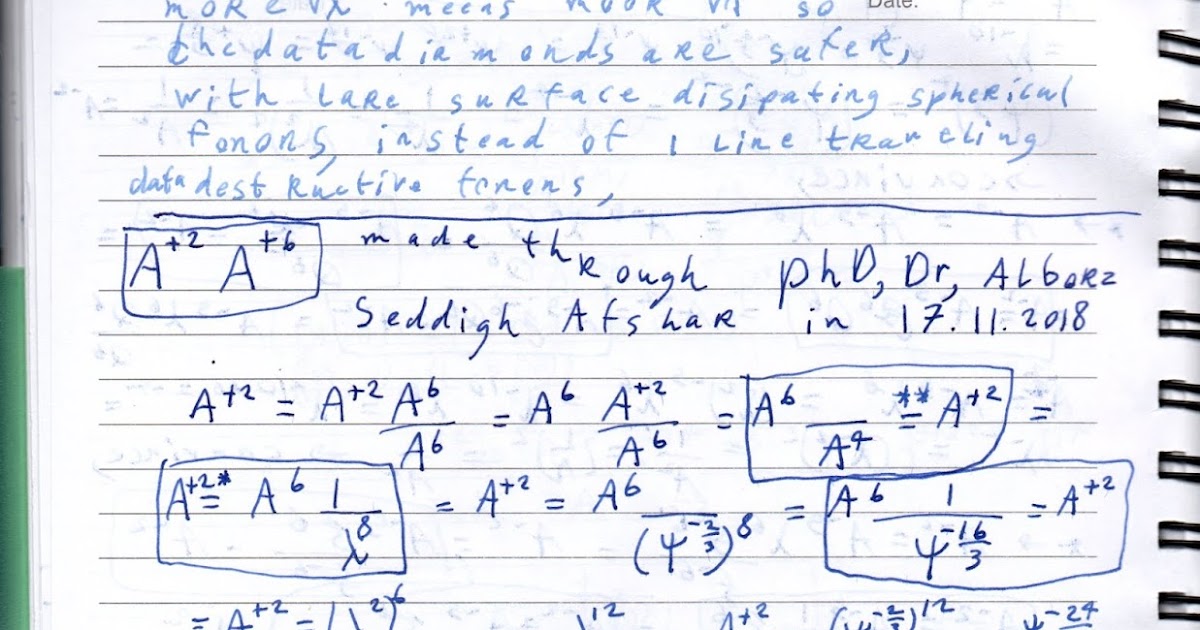 MORE means so Date:
the data diamonds are safer,
with lare surface disipating spherical
fonons, instead of 1 line traveling
data destructive fonens,
A⁺² A⁺⁶ made through phD, Dr, Alborz
Seddigh Afshar in 17.11.2018
A⁺² = A⁺² A⁶/A⁶ = A⁶ A⁺²/A⁶ = A⁶ /A⁴ **= A⁺² =
A⁺² *= A⁶ 1/λ⁸ = A⁺² = A⁶ /(ψ^-2/3)⁸ = A⁶ 1/ψ^-16/3 = A⁺²
= A⁺² = (λ²)⁶ ¹² A⁺² (ψ^-2/3)¹² ψ^-24